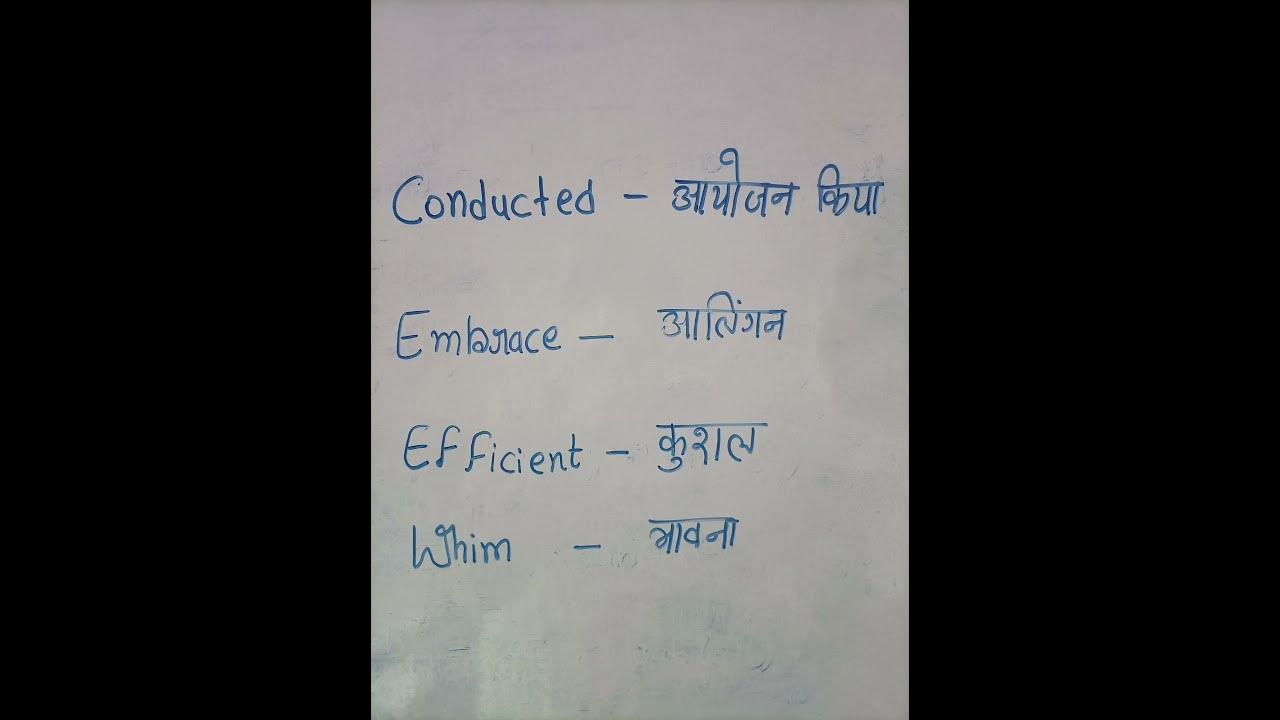 Conducted - आयोजन किया
Embrace - आलिंगन
Efficient - कुशल
Whim - भावना